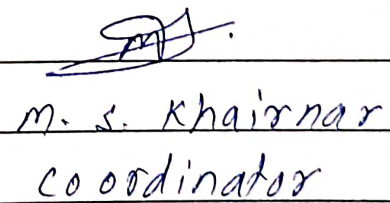 M. S. Khairnar
coordinator